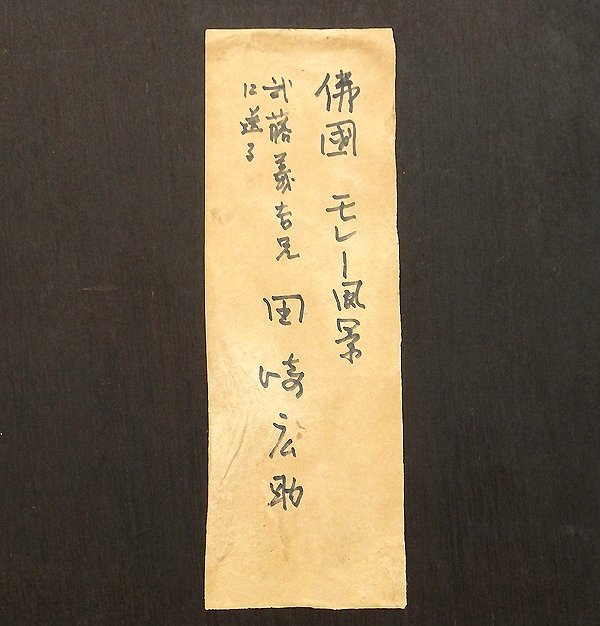 佛國 モレー風景
武藤義吉兄
に送る
田崎広助